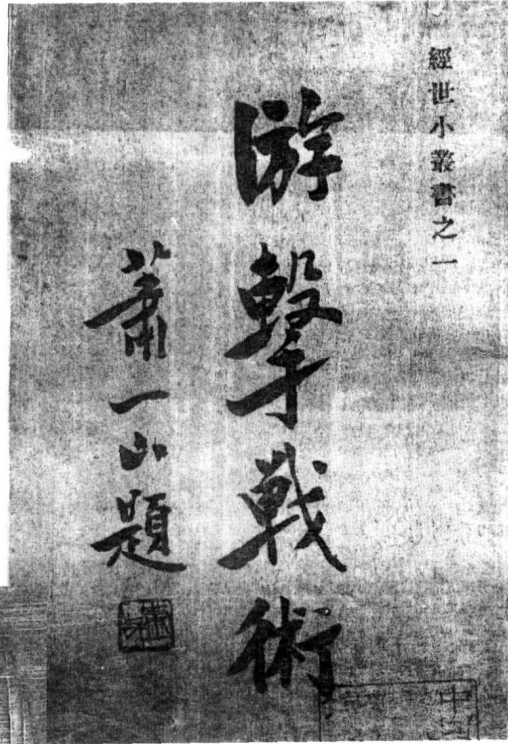 經世小叢書之一
游擊戰術
蕭一山題